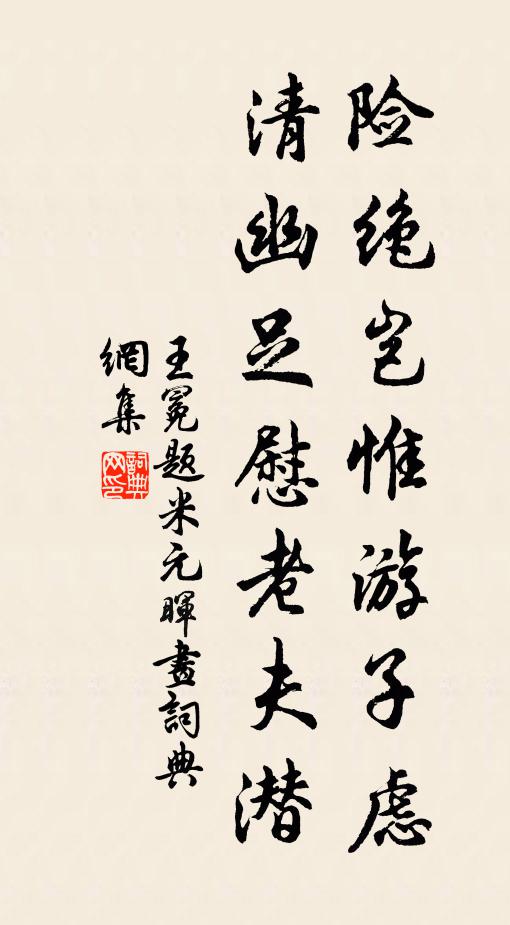 险绝岂惟游子虑
清幽足慰老夫潜
王冕题米元暉畫詞典
網集
詞典网印